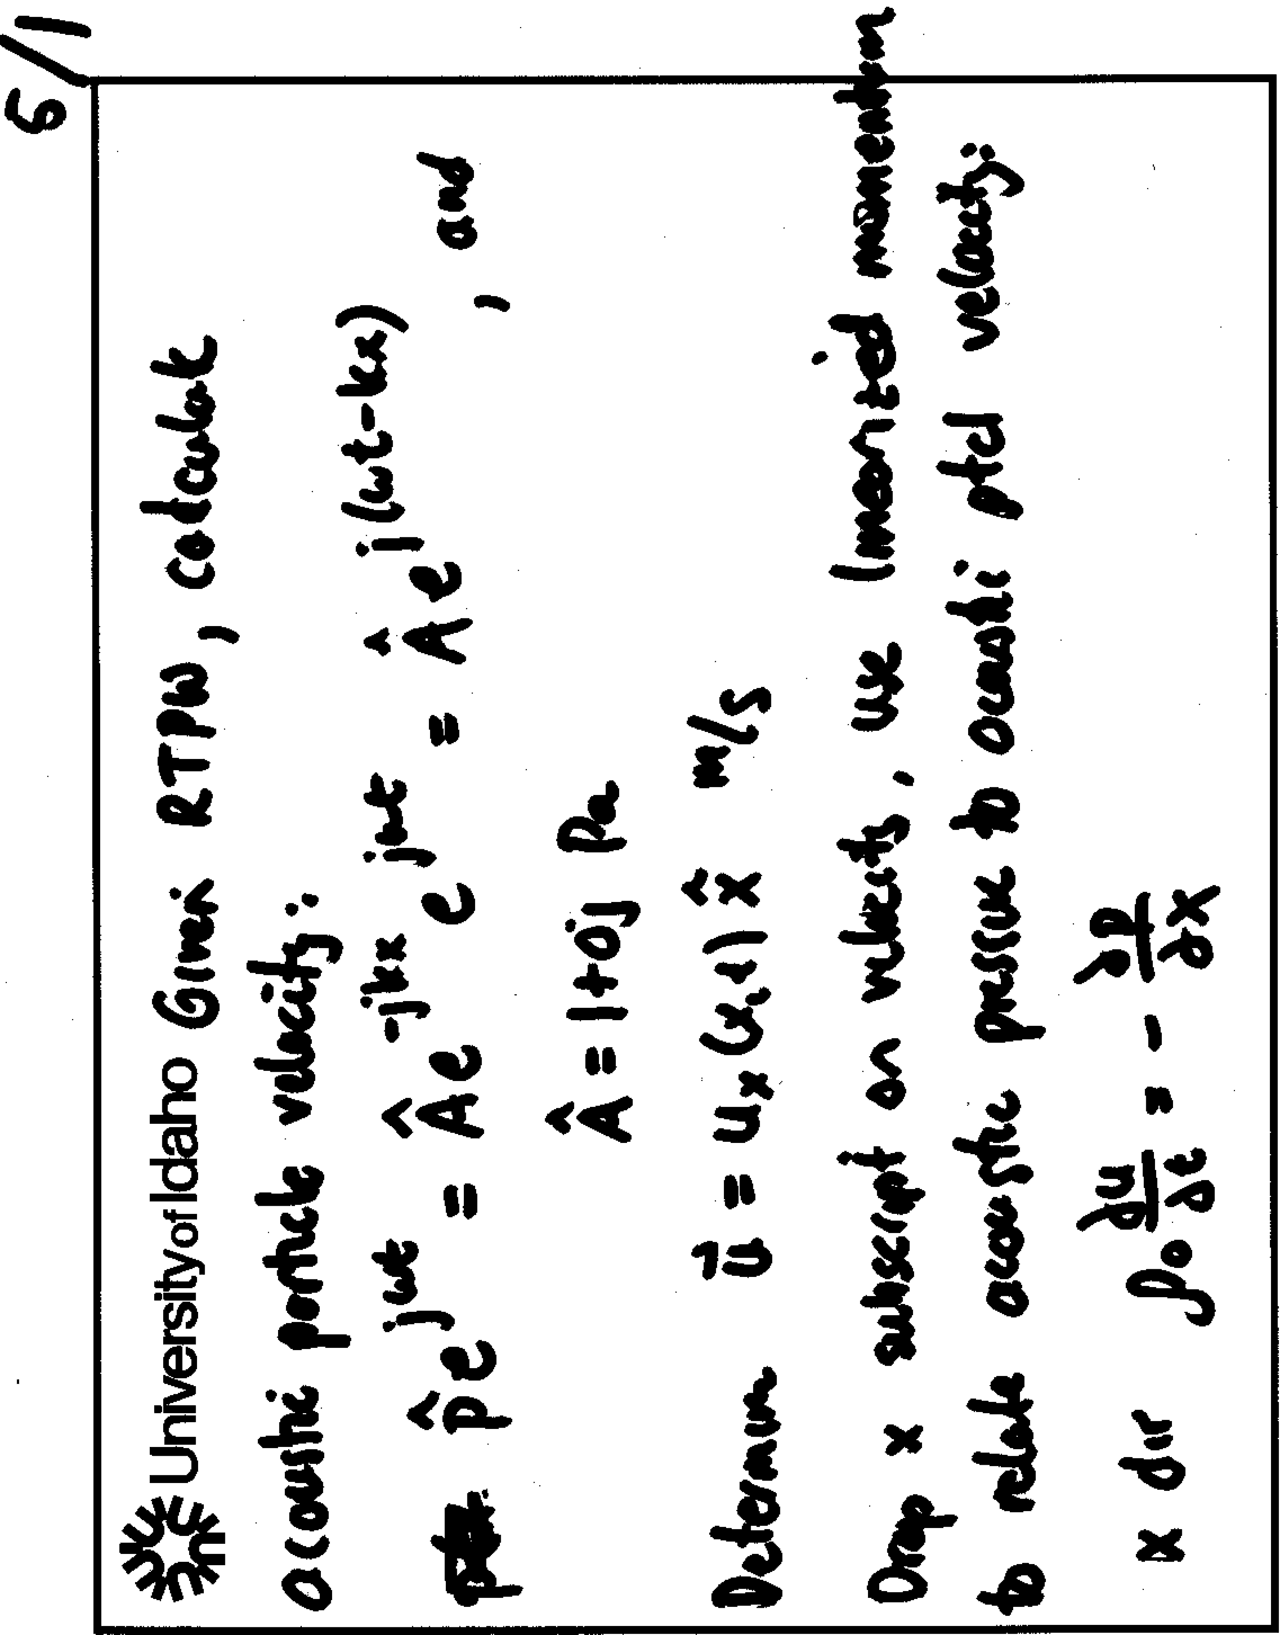 5/1
University of Idaho Given RTPW, calculate
acoustic particle velocity:
p̂e^{jωt} = Âe^{-jkx} e^{jωt} = Âe^{j(ωt-kx)}, and
Â = 1+0j Pa
Determine ū = u_x(x,t) x̂ m/s
Drop x subscript on velocity, use linearized momentum
to relate acoustic pressure to acousti ptcl velocity:
x dir ρ₀ ∂u/∂t = - ∂p/∂x